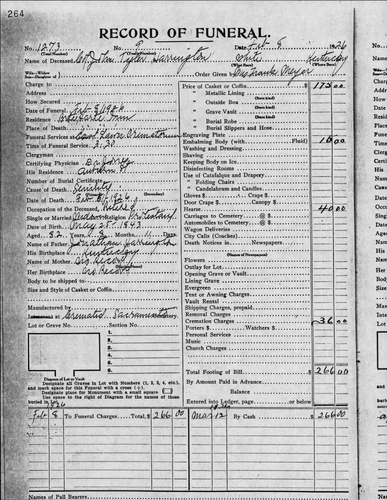 264
RECORD OF FUNERAL.
No. 1273 No. 9 Date Feb. 8 1926
(Total Number) (Yearly Number)
Name of Deceased John Tyler Harrington White Kentucky
(What Race) (Where Born)
Wife—Widow
Son—Daughter of
Order Given Mrs. Frank Meyer
Charge to
Address
How Secured
Date of Funeral Feb 8 1926
Place of Death
Funeral Services East Lawn Crematorium
Time of Funeral Services
Clergyman
Certifying Physician
His Address Auburn
Number of Burial Certificate
Cause of Death Senility
Date of Death Feb. 1926
Occupation of the Deceased Retired
Single or Married Widower Religion Protestant
Date of Birth May 25 1843
Aged 82 8 11 Days
Name of Father Jonathan Harrington
His Birthplace Kentucky
Name of Mother No Record
Her Birthplace No Record
Body to be shipped to
Size and Style of Casket or Coffin
Manufactured by
Cremated Sacramento
Lot or Grave No. Section No.
1
2
3
4
5
Diagram of Lot or Vault
Designate all Graves in Lot with Numbers (1, 2, 3, 4, etc.),
and mark space for this Funeral with a cross (+).
Designate place for Monument with a small square
Use space to the right of Diagram for the names of those
buried in Lot.
Price of Casket or Coffin $ 175 00
" Metallic Lining
(State Kind)
" Outside Box
(State Kind)
" Grave Vault
(State Kind)
" Burial Robe
(State Kind)
" Burial Slippers and Hose
Engraving Plate
Embalming Body (with Fluid) 15 00
Washing and Dressing
Shaving
Keeping Body on Ice
Disinfecting Rooms
Use of Catafalque and Drapery
" Folding Chairs
" Candelabrum and Candles
Gloves $ Door Crape $
Door Crape $ Canopy $
Hearse 40 00
Carriages to Cemetery @ $
Automobiles to Cemetery @ $
Wagon Deliveries
City Calls (Coaches)
Death Notices in Newspapers
(Names of Newspapers)
Flowers
Outlay for Lot
Opening Grave or Vault
Lining Grave
Evergreen
Tent or Awning Charges
Vault Rental
Shipping Charges, prepaid
Removal Charges
Cremation Charges 36 00
Porters $ Watchers $
Personal Services
Music
Church Charges
Total Footing of Bill $ 266 00
By Amount Paid in Advance
Balance
Entered into Ledger, page or below.
1926
Feb 8 To Funeral Charges Total, $ 266 00 Mar 12 By Cash $ 266 00
Names of Pall Bearers